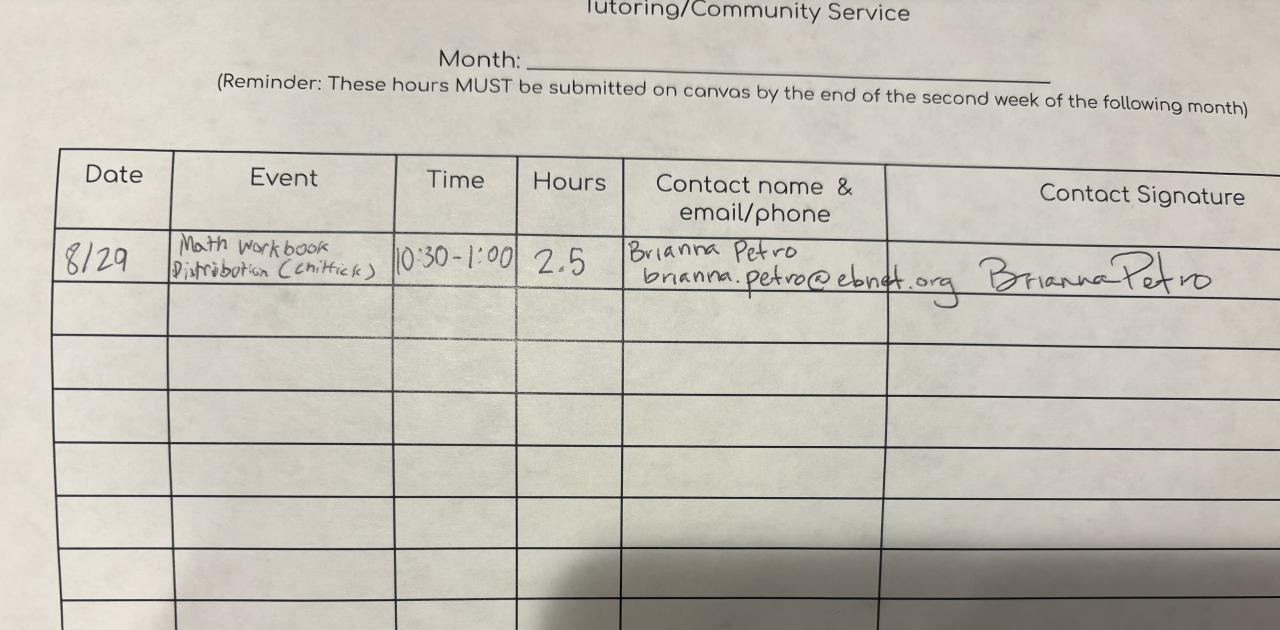 Tutoring/Community Service
Month:
(Reminder: These hours MUST be submitted on canvas by the end of the second week of the following month)
Date Event Time Hours Contact name & email/phone Contact Signature
8/29 Math Workbook Distribution (Chittick) 10:30-1:00 2.5 Brianna Petro brianna.petro@ebnet.org Brianna Petro